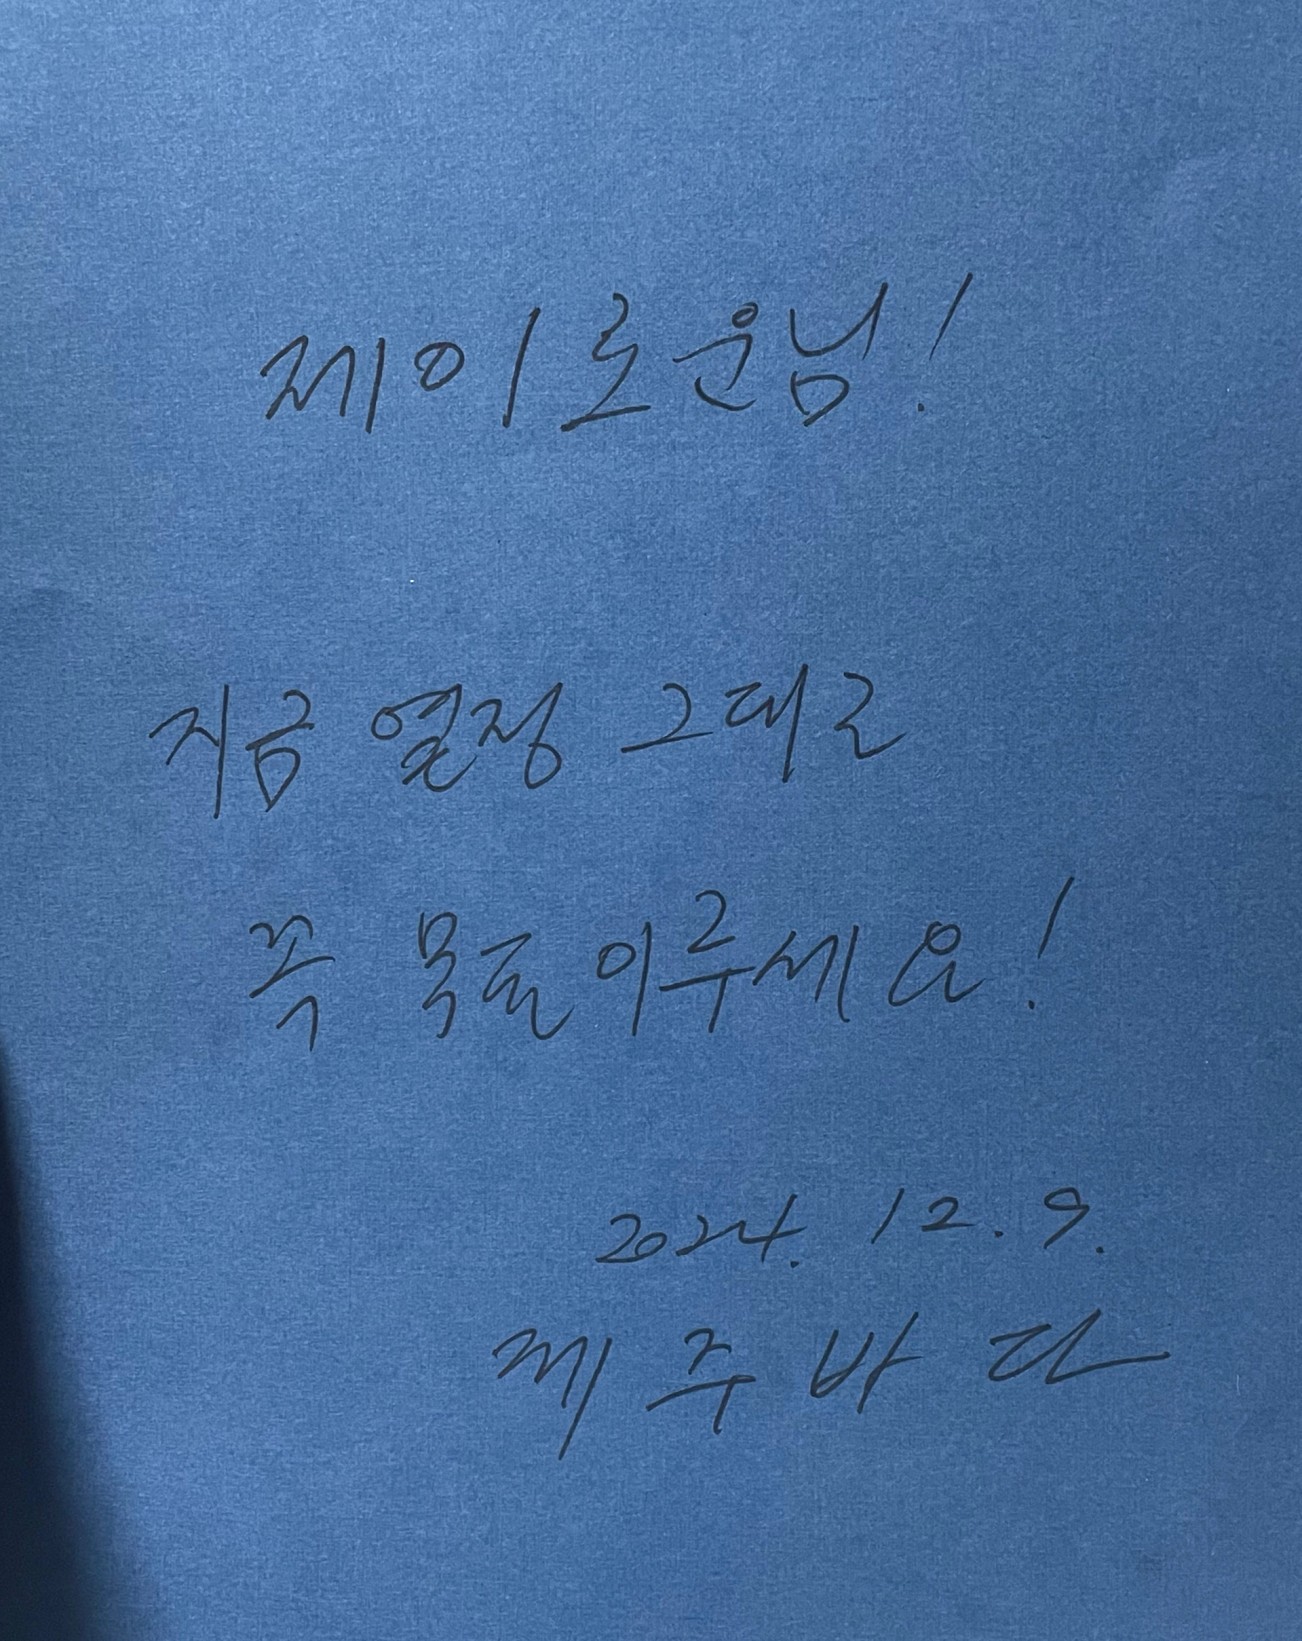 제이로운님!
지금 열정 그대로
꼭 목표 이루세요!
2024. 12. 9.
제주바다